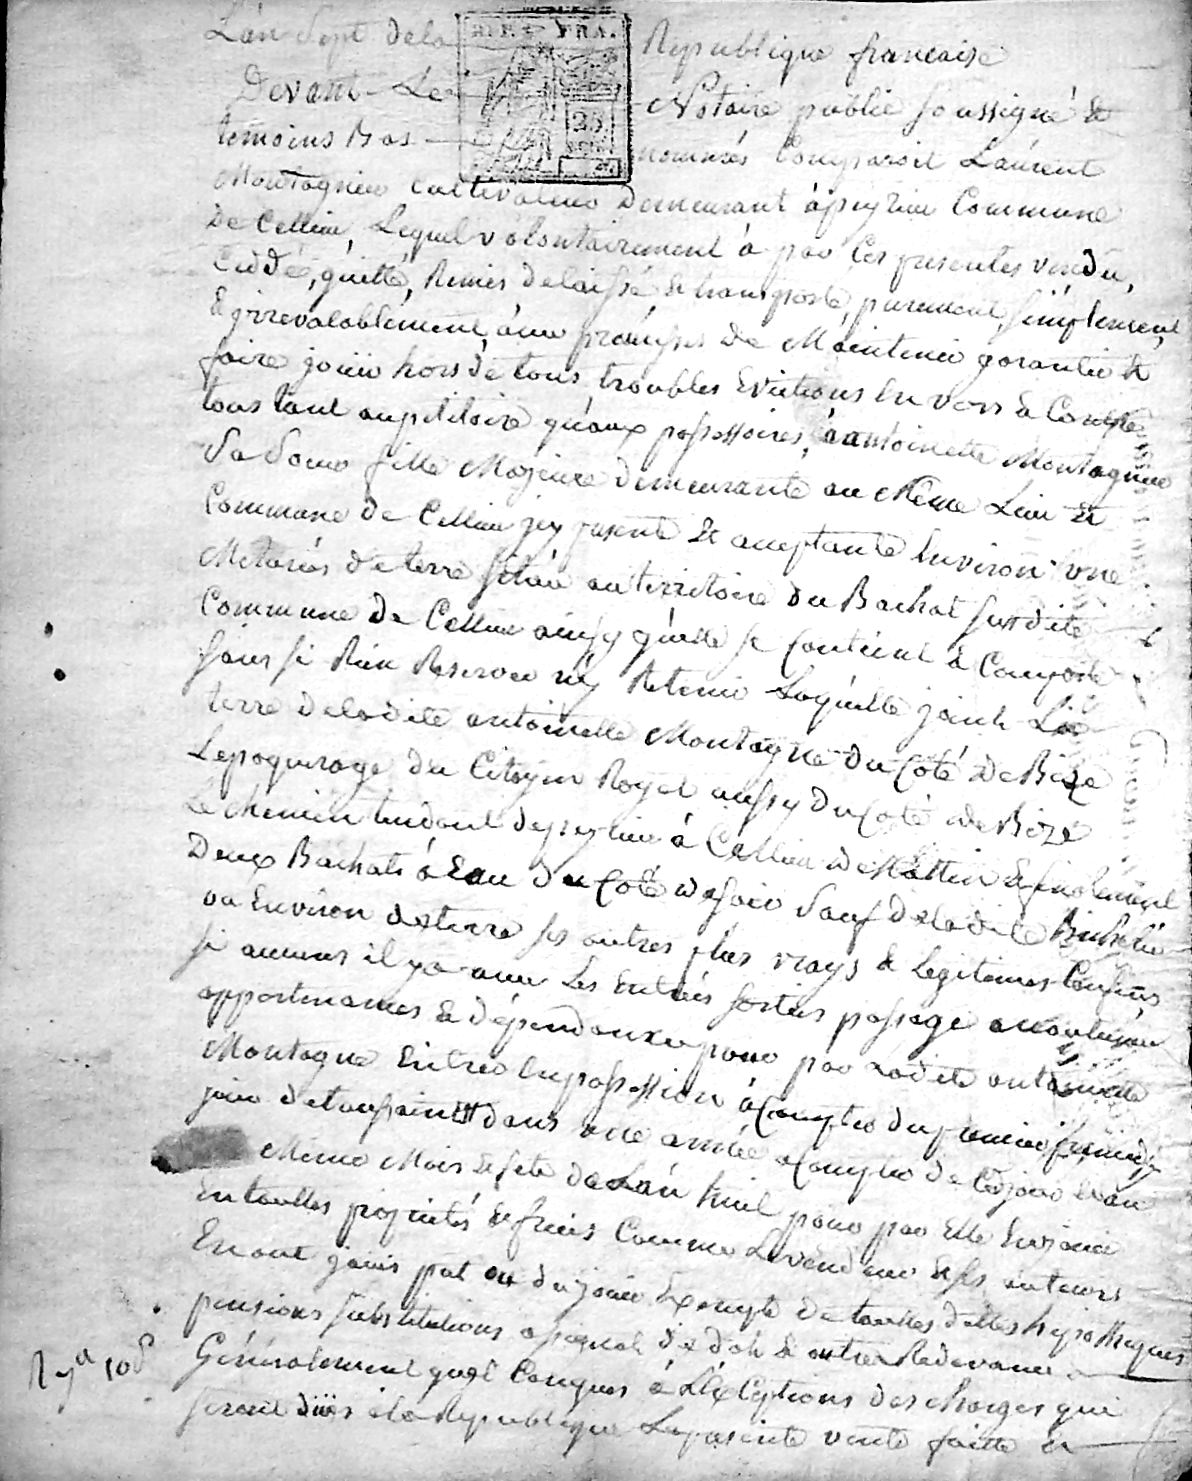 L'an Sept dela REP. FRA. Republique francaise
Devant Le Notaire public soussigné &
temoins Bas 25 nommés Comparoit Laurent
Montagnier cultivateur Demeurant á peyrieu Commune
De Cellieu, Lequel volontairement á par Ces presentes vendu,
Ceddé, quitté, Remis delaissé & transporté, purement, simplement,
& irrevocablement, avec promesses de Maintenir garantir &
faire jouir hors de tous troubles Evictions Envers & Contre
tous tant aupetitoire qu'aux possessoires, á antoinette Montagnier
Sa Soeur fille Majeure demeurante au Même Lieu &
Commune de Cellieu jcy presente & acceptante Environ une
Metairés de terre située au territoire du Bachat susdite
Commune de Cellieu ainsy qu'elle se Contient & Comporte
sans si Rien Reserver ny Retenir Laquelle joint La
terre deladite antoinette Montagne du Coté de Bize
Lepaquerage du Citoyen Royet aussy du Coté de Bize
Le chemin tendant depeyrieu á Cellieu de Mattin & finalement
Deux Bachats á Eau du Coté de soir Sauf deladite Bicherée
ou Environ de terre ses autres plus vrays & legitimes Confins
si aucuns il ya avec Les Entrées sorties passage accoutumé
appartenances & dépendances pour par Ladite antoinette
Montagne Entrer Enpossession á Compter du premier
jour detoussaint dans une année a Compter de Cejour
Même Mois & fete de Lan huit pour par Elle En jouir
En touttes proprietés & fruits Comme Levendeur & ses auteurs
En ont jouis put ou du jouir Exempte de touttes dettes hypotheques
pensions substitutions & autres Redevances
Généralement quel Conques á L'Exceptions des charges qui
seroit dües á la Republique La presente vente faitte &